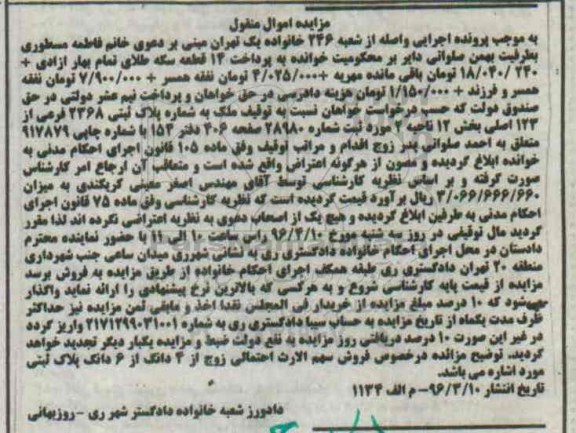 مزایده اموال منقول
به موجب پرونده اجرایی واصله از شعبه ۲۴۶ خانواده یک تهران مبنی بر دعوی خانم فاطمه مسطوری
بطرفیت بهمن صلواتی دایر بر محکومیت خوانده به پرداخت ۱۴ قطعه سکه طلای تمام بهار ازادی +
۲۴۰ /۱۸/۰۴۰ تومان باقی مانده مهریه +۴/۰۲۵/۰۰۰ تومان نفقه همسر + ۷/۹۰۰/۰۰۰ تومان نفقه
همسر و فرزند + ۱/۱۵۰/۰۰۰ تومان هزینه دادرسی در حق خواهان و پرداخت نیم عشر دولتی در حق
صندوق دولت که حسب درخواست خواهان نسبت به توقیف ملک به شماره پلاک ثبتی ۲۳۶۸ فرعی از
۱۲۳ اصلی بخش ۱۲ ناحیه ۲ مورد ثبت شماره ۲۸۹۸۰ صفحه ۴۰۶ دفتر ۱۵۳ با شماره چاپی ۹۱۷۸۷۹
متعلق به احمد صلواتی پدر زوج اقدام و مراتب توقیف وفق ماده ۱۰۵ قانون اجرای احکام مدنی به
خوانده ابلاغ گردیده و مصون از هرگونه اعتراض واقع شده است و متعاقب آن ارجاع امر کارشناس
صورت گرفته و بر اساس نظریه کارشناسی توسط آقای مهندس اصغر معینی گریکندی به میزان
۳/۰۶۶/۶۶۶/۶۶۰ ریال برآورد قیمت گردیده است که نظریه کارشناسی وفق ماده ۷۵ قانون اجرای
احکام مدنی به طرفین ابلاغ گردیده و هیچ یک از اصحاب دعوی به نظریه اعتراضی نکرده اند لذا مقرر
گردید مال توقیفی در روز سه شنبه مورخ ۹۶/۴/۱۰ راس ساعت ۱۰ الی ۱۱ با حضور نماینده محترم
دادستان در محل اجرای احکام خانواده دادگستری ری به نشانی شهرری میدان ساعی جنب شهرداری
منطقه ۲۰ تهران دادگستری ری طبقه همکف اجرای احکام خانواده از طریق مزایده به فروش برسد
مزایده از قیمت پایه کارشناسی شروع و به هرکسی که بالاترین نرخ پیشنهادی را ارائه نماید واگذار
میشود که ۱۰ درصد مبلغ مزایده از خریدار فی المجلس نقدا اخذ و مابقی ثمن مزایده نیز حداکثر
ظرف مدت یکماه از تاریخ مزایده به حساب سیبا دادگستری ری به شماره ۲۱۷۱۲۹۹۰۳۱۰۰۱ واریز گردد
در غیر این صورت ۱۰ درصد دریافتی روز مزایده به نفع دولت ضبط و مزایده یکبار دیگر تجدید خواهد
گردید. توضیح مزائده درخصوص فروش سهم الارث احتمالی زوج از ۴ دانگ از ۶ دانگ پلاک ثبتی
مورد اشاره می باشد.
تاریخ انتشار ۹۶/۳/۱۰- م الف ۱۱۳۴
دادورز شعبه خانواده دادگستر شهر ری -روزبهانی